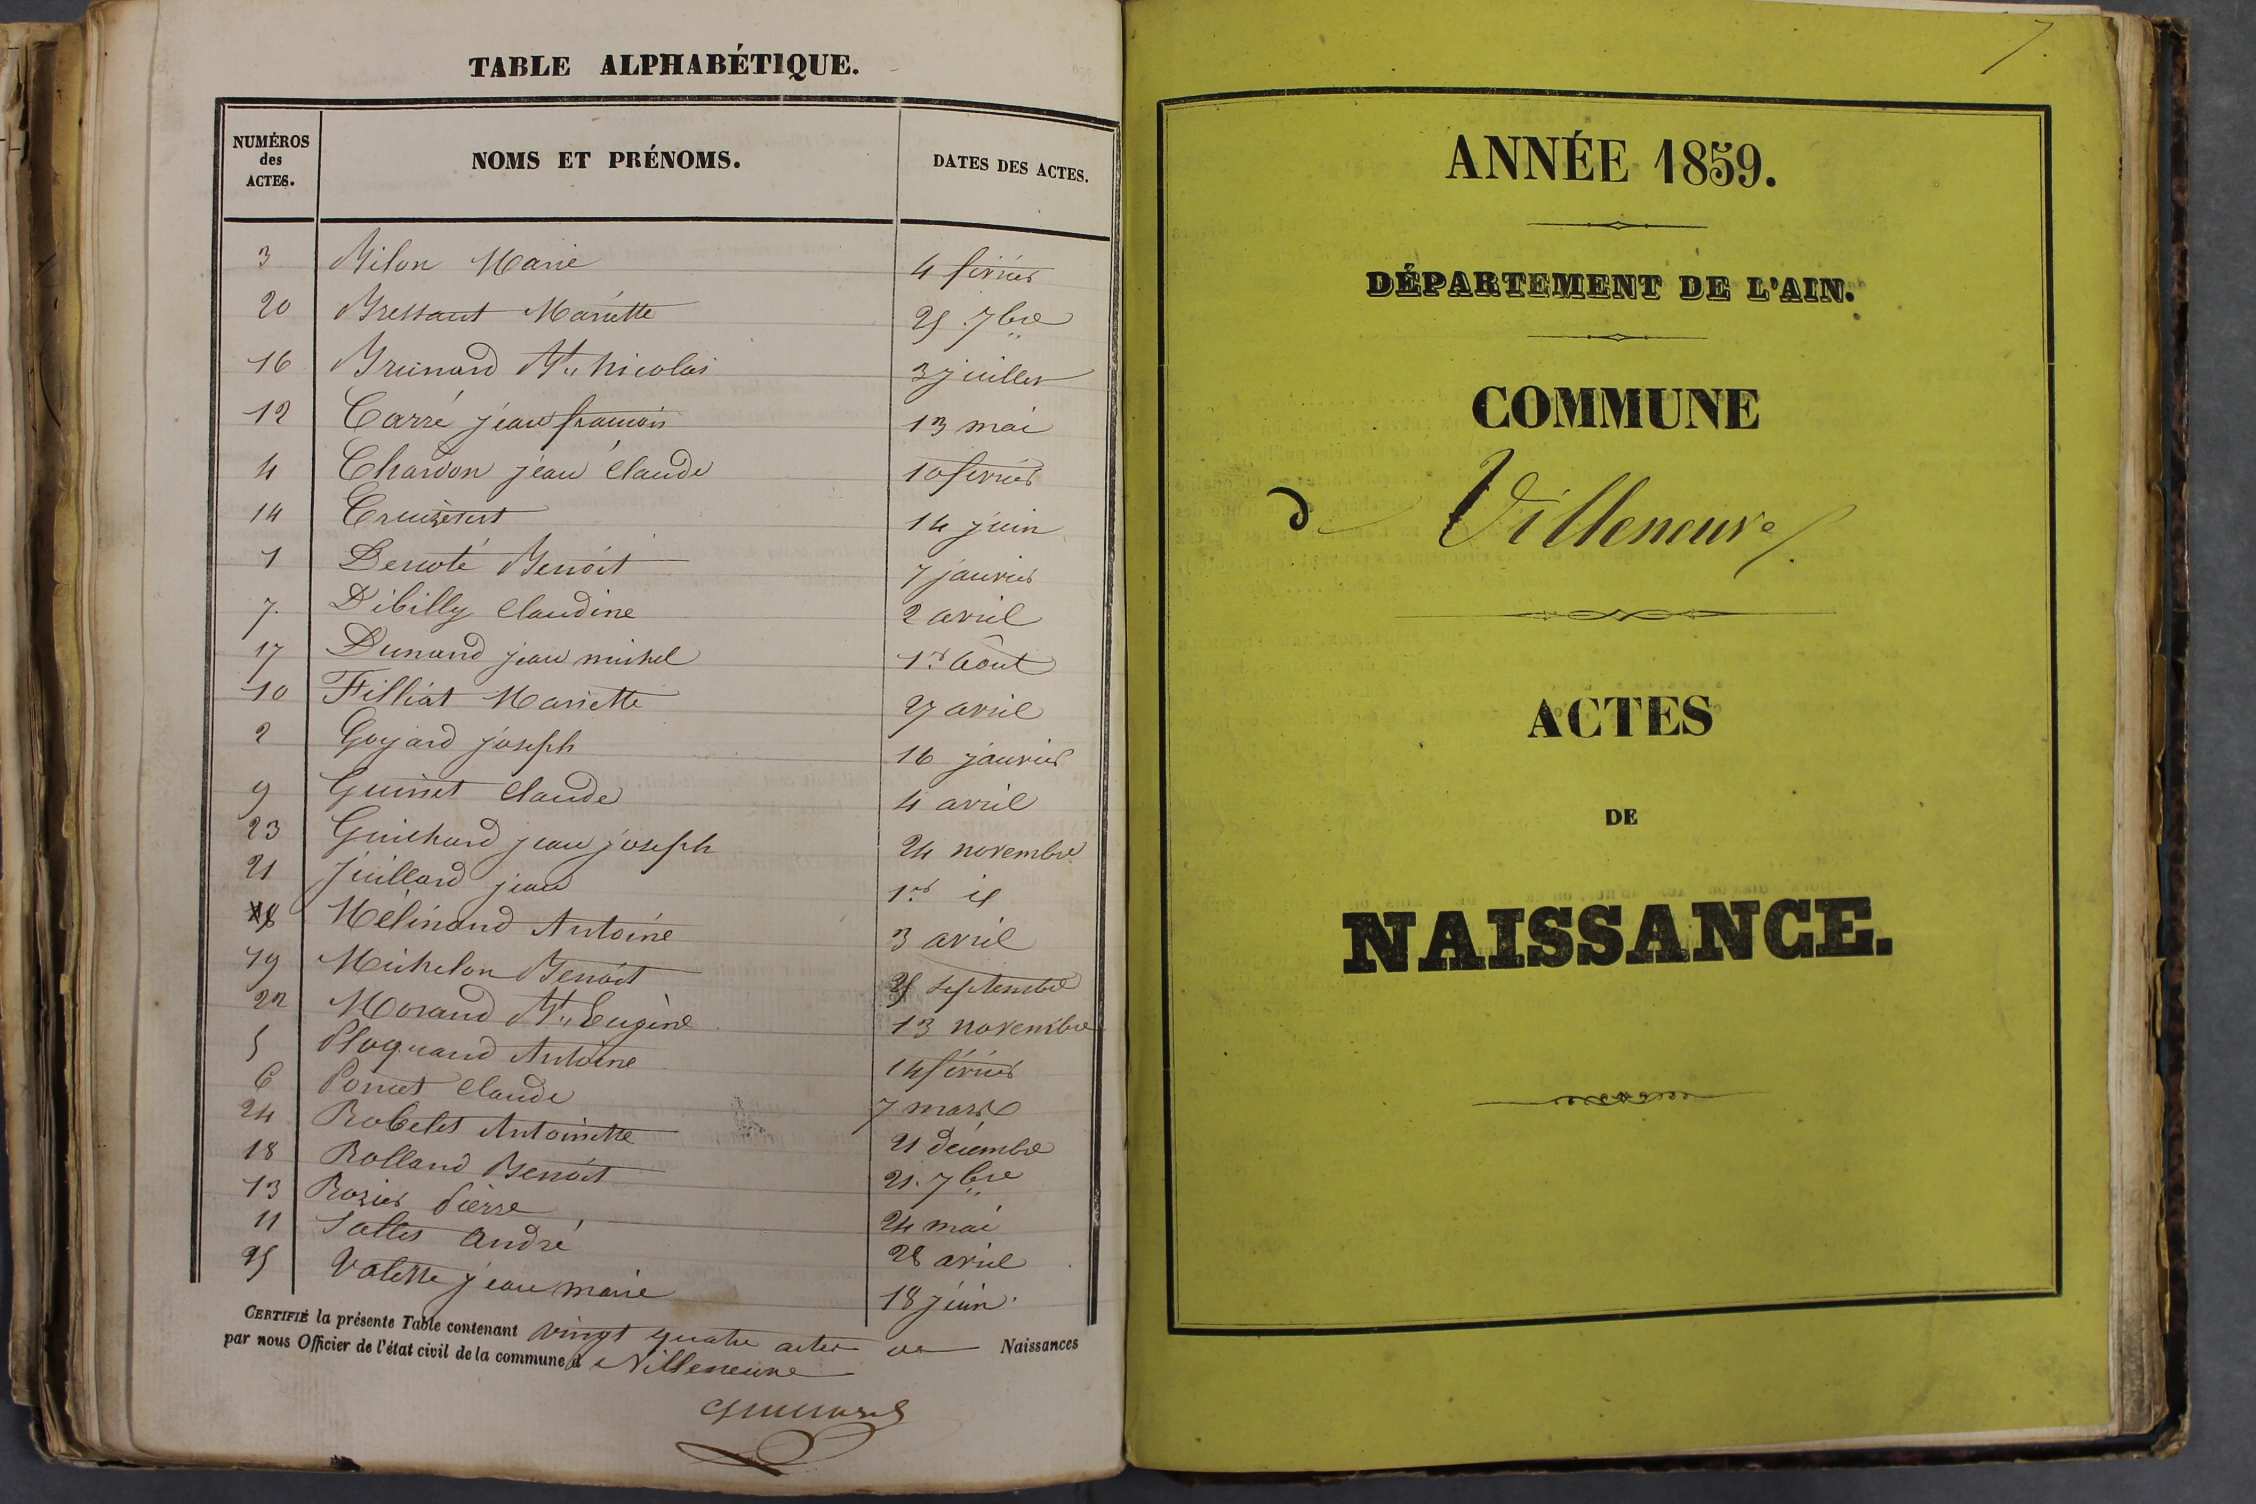 TABLE ALPHABÉTIQUE.
NUMÉROS des ACTES. NOMS ET PRÉNOMS. DATES DES ACTES.
3 Bilon Marie 4 février
20 Bressant Mariette 25 7bre
16 Brunard Bt. Nicolas 3 juillet
12 Carré jean françois 13 mai
4 Chardon jean Claude 10 février
14 14 juin
1 Benoit 7 janvier
7. Débilly Claudine 2 avril
17 Dunand jean michel 1er Août
10 Filliat Mariette 27 avril
2 Goyard joseph 16 janvier
9 Guinet Claude 4 avril
23 Guichard jean joseph 24 novembre
21 Juillard jean 1er id
8 Mélinand Antoine 3 avril
19 Michelon Benoit 25 septembre
22 Morand Bt. Eugène 13 novembre
5 Ploquand Antoine 14 février
6 Poncet Claude 7 mars
24 Robelet Antoinette 21 décembre
18 Rolland Benoit 21. 7bre
13 Rozier Pierre 24 mai
11 Salles André 28 avril
25 Valette jean marie 18 juin.
CERTIFIÉ la présente Table contenant vingt quatre actes de Naissances
par nous Officier de l'état civil de la commune d Villeneuve
7.
ANNÉE 1859.
DÉPARTEMENT DE L'AIN.
COMMUNE
de Villeneuve.
ACTES
DE
NAISSANCE.